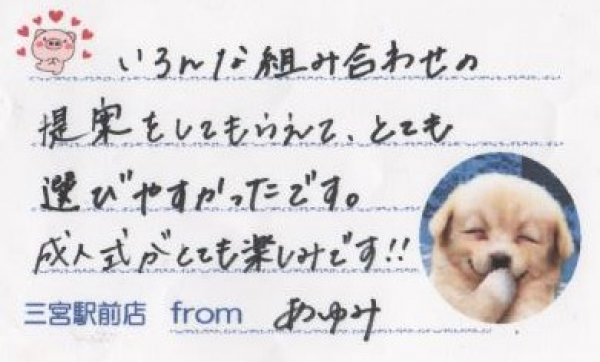 いろんな組み合わせの
提案をしてもらえて、とても
選びやすかったです。
成人式がとても楽しみです!!
三宮駅前店 from あゆみ